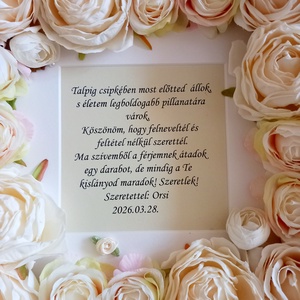 Talpig csipkében most előtted állok,
s életem legboldogabb pillanatára
várok.
Köszönöm, hogy felneveltél és
feltétel nélkül szerettél.
Ma szívemből a férjemnek átadok
egy darabot, de mindig a Te
kislányod maradok! Szeretlek!
Szeretettel: Orsi
2026.03.28.